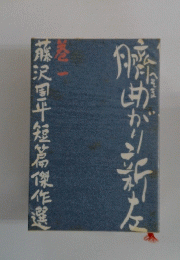 臍曲がり新左
藤沢周平短篇傑作選
巻一